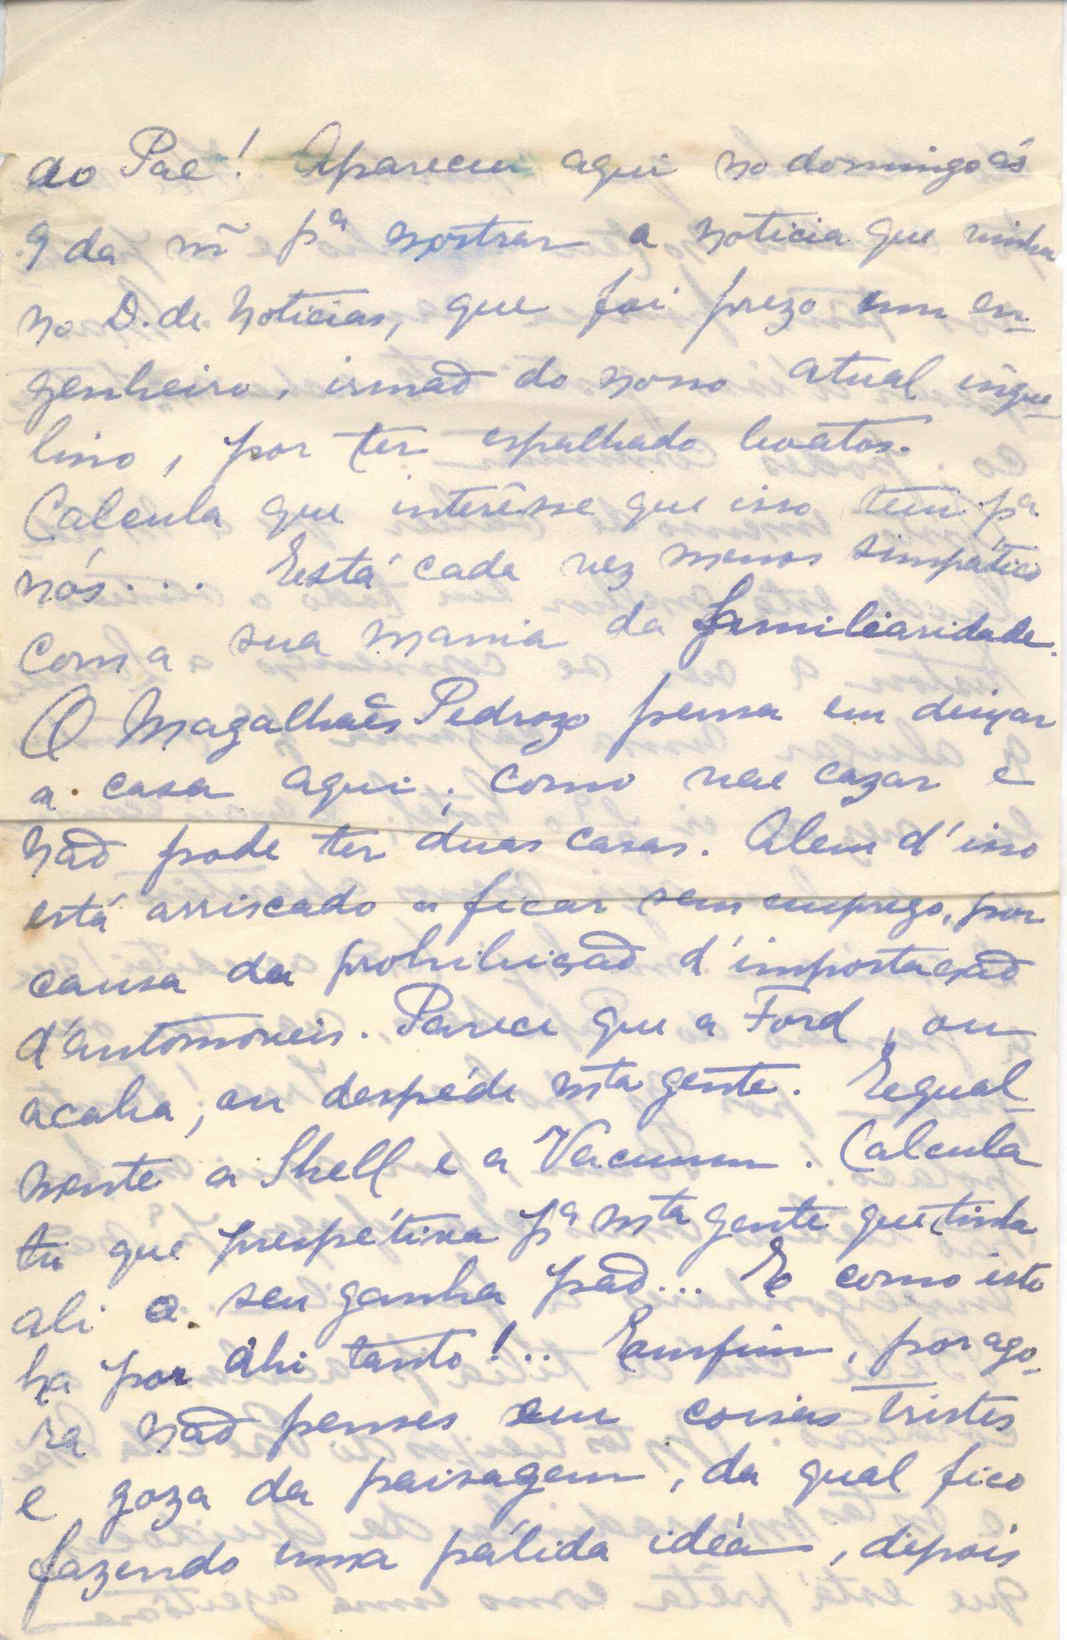 ao Pae! Apareceu aqui no domingo ás
9 da m̃ pª mostrar a noticia que vinha
no D. de Noticias, que foi prezo um en-
genheiro, irmaõ do nosso atual inque-
lino, por ter espalhado boatos.
Calcula que interêsse que isso tem pª
nós... Está cada vez menos simpático
com a sua mania da familiaridade.
O Magalhães Pedrozo pensa em deixar
a casa aqui, como vae cazar e
naõ pode ter duas casas. Alem d'isso
está arriscado a ficar sem emprego, por
causa da prohibiçaõ d'importaçaõ
d'automoveis. Parece que a Ford, ou
acaba, ou despéde mta gente. Egual-
mente a Shell e a Vacuum. Calcula
tu que prespétiva pª mta gente que tinha
ali o seu ganha paõ... E como isto
ha por ahi tanto!.. Emfim, por ago-
ra naõ penses em coisas tristes
e goza da paisagem, da qual fico
fazendo uma pálida idéa, depois